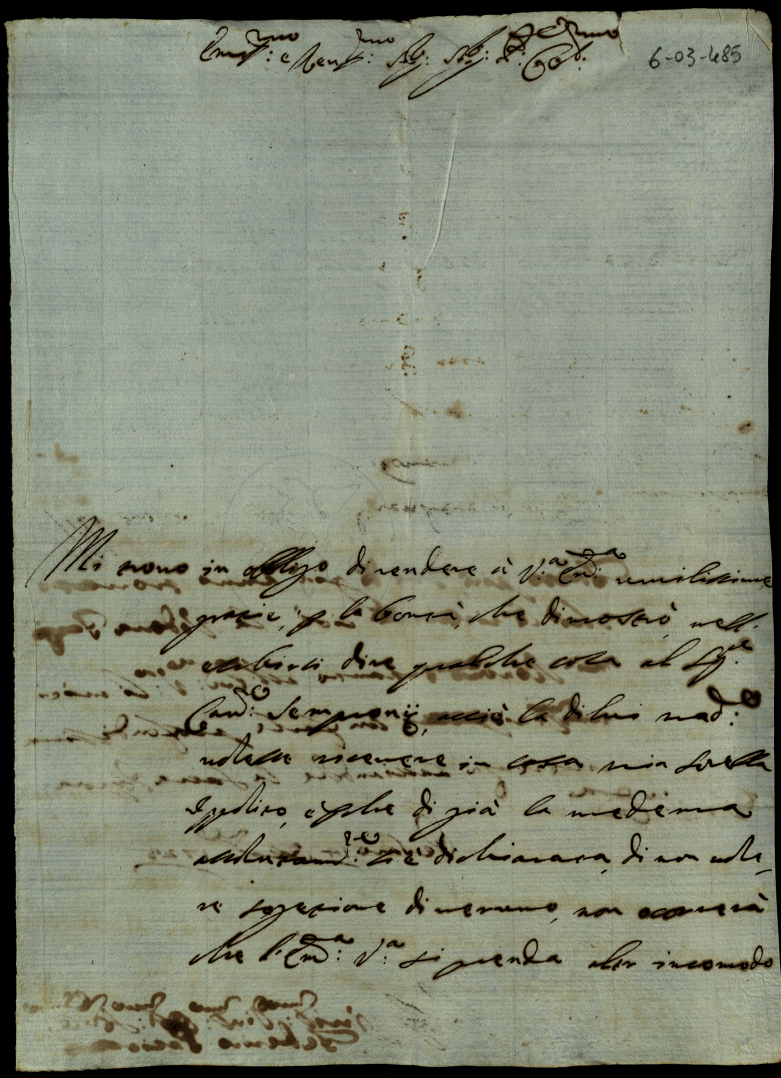 Em.mo: e Reu.mo: Sig: Sig: P.
6-03-485
Mi trovo in obligo di rendere à V.a Em.a: umilissime
grazie, p la bontà, che dimostrò, nell'
esibirsi dire qualche cosa al Sig.e
Cau.e: Sempronij, acciò la di lui mad.e:
volesse ricevere in casa mia sorella
Ippolito, e p che di già la medema
assolutam.te: si è dichiarata, di non vole,
re sogezione di veruno, non occorrerà
che l'Em.a: V.a si prenda altr incomodo